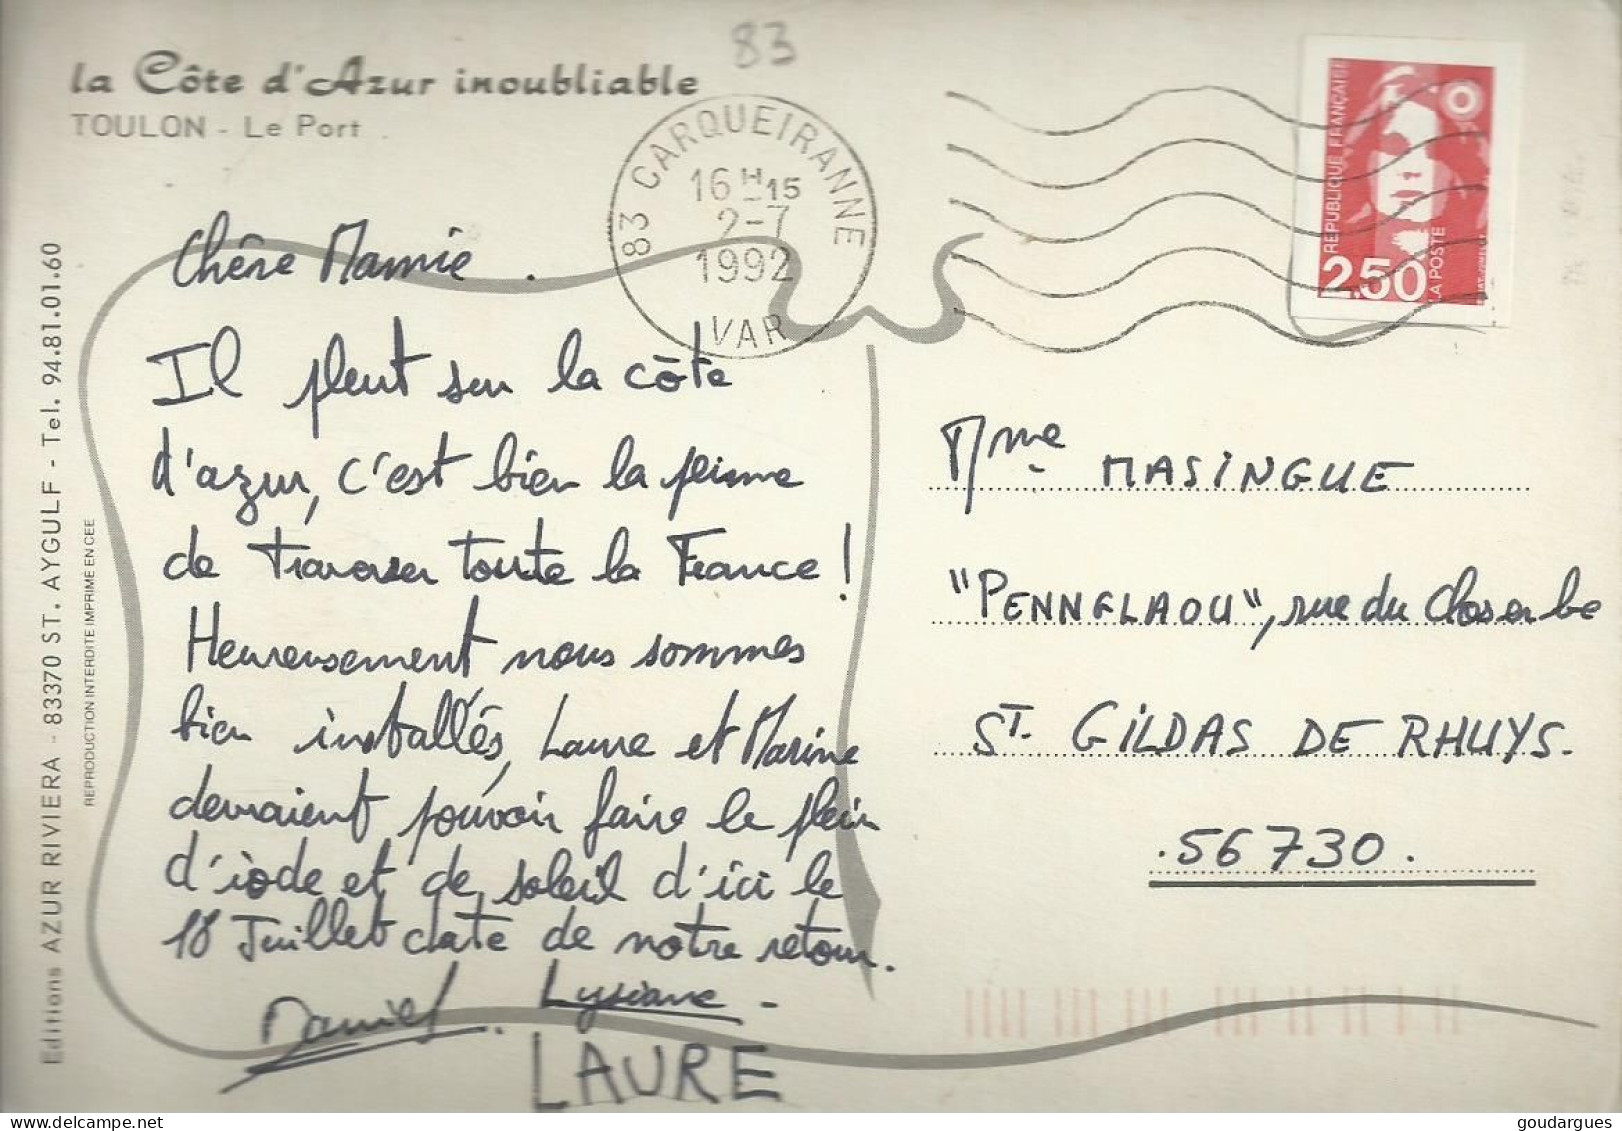 83
la Côte d'Azur inoubliable
TOULON - Le Port
83 CARQUEIRANNE
16H15
2-7
1992
VAR
RÉPUBLIQUE FRANÇAISE
2.50
LA POSTE
Chère Mamie.
Il pleut sur la côte
d'azur, c'est bien la peine
de traverser toute la France !
Heureusement nous sommes
bien installés, Laure et Marine
devraient pouvoir faire le plein
d'iode et de soleil d'ici le
18 Juillet date de notre retour.
Daniel. Lysiane -
LAURE
Mme MASINGUE
"PENNGLAOU", rue du Closerbe
ST. GILDAS DE RHUYS.
.56730.
Editions AZUR RIVIERA - 83370 ST. AYGULF - Tel. 94.81.01.60
REPRODUCTION INTERDITE IMPRIME EN CEE
www.delcampe.net
goudargues